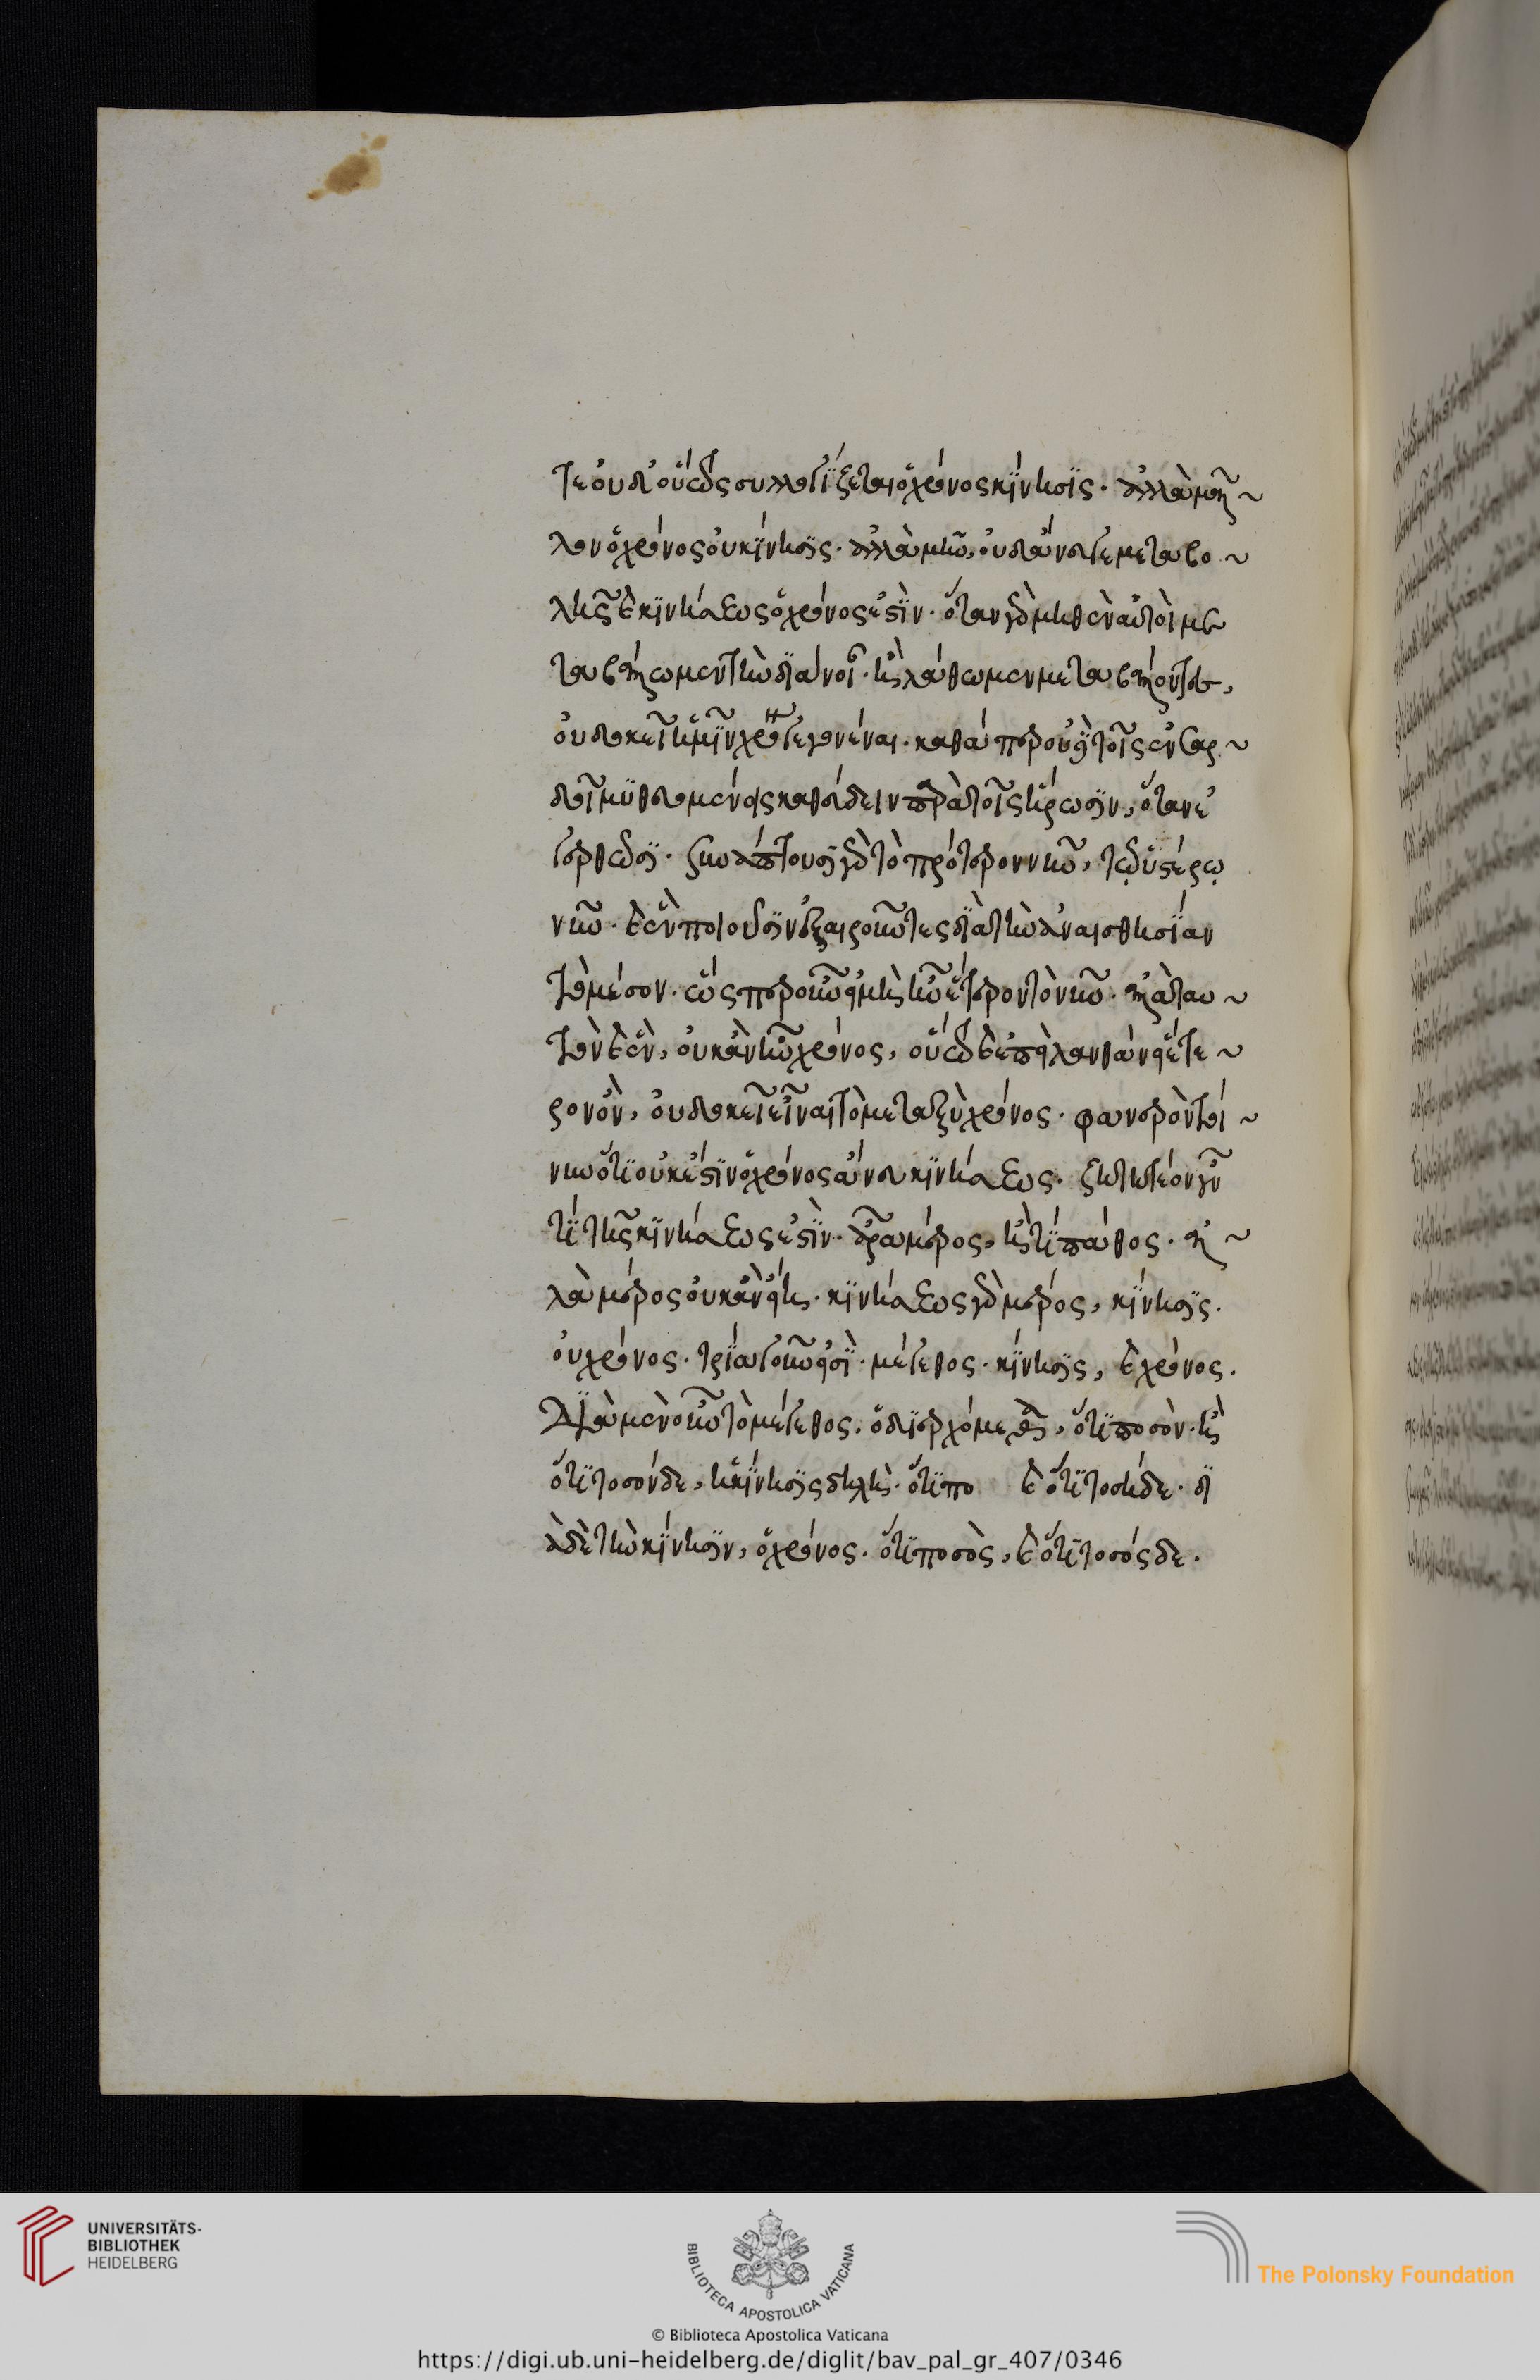 τε οὐδ' οὕτως συλλογίζεται ὁ χρόνος κίνησις. ἀλλὰ μᾶλ ~
λον ὁ χρόνος οὐ κίνησις. ἀλλὰ μὴν, οὐδ' ἄνευ γε μεταβο ~
λῆς καὶ κινήσεως ὁ χρόνος ἐστίν. ὅταν γὰρ μηθὲν αὐτοὶ με
ταβάλλωμεν τὴν διάνοιαν. ἢ λάθωμεν μεταβάλλοντες,
οὐ δοκεῖ ἡμῖν χρόνος γεγονέναι. καθάπερ οὐδὲ τοῖς ἐν Σαρ ~
δοῖ μυθολογουμένοις καθεύδειν παρὰ τοῖς ἥρωσιν, ὅταν ἐ
γερθῶσι. συνάπτουσι γὰρ τὸ πρότερον νῦν, τῷ ὑστέρῳ
νῦν. καὶ ἓν ποιοῦσιν ἐξαιροῦντες διὰ τὴν ἀναισθησίαν
τὸ μέσον. ὥσπερ οὖν εἰ μὴ ἦν ἕτερον τὸ νῦν. ἀλλὰ ταυ ~
τὸν καὶ ἓν, οὐκ ἂν ἦν χρόνος, οὕτω καὶ ἐπεὶ λανθάνει ἕτε ~
ρον ὂν, οὐ δοκεῖ εἶναι τὸ μεταξὺ χρόνος. φανερὸν τοί ~
νυν ὅτι οὐκ ἔστιν ὁ χρόνος ἄνευ κινήσεως. ζητητέον οὖν
τί τῆς κινήσεως ἐστίν. ἆρα μέρος, ἢ τί πάθος. ἀλ ~
λὰ μέρος οὐκ ἂν εἴη. κινήσεως γὰρ μέρος, κίνησις.
οὐ χρόνος. τρία γοῦν εἰσί. μέγεθος. κίνησις, καὶ χρόνος.
Διὰ μὲν οὖν τὸ μέγεθος. ὃ διερχόμεθα, ὅτι ποσὸν. ἢ
ὅτι τοσόνδε, ἡ κίνησις δηλοῖ. ὅτι πο καὶ ὅτι τοσήδε. δι
ὰ δὲ τὴν κίνησιν, ὁ χρόνος. ὅτι ποσὸς, καὶ ὅτι τοσόσδε.
UNIVERSITÄTS-
BIBLIOTHEK
HEIDELBERG
BIBLIOTECA APOSTOLICA VATICANA
The Polonsky Foundation
© Biblioteca Apostolica Vaticana
https://digi.ub.uni-heidelberg.de/diglit/bav_pal_gr_407/0346